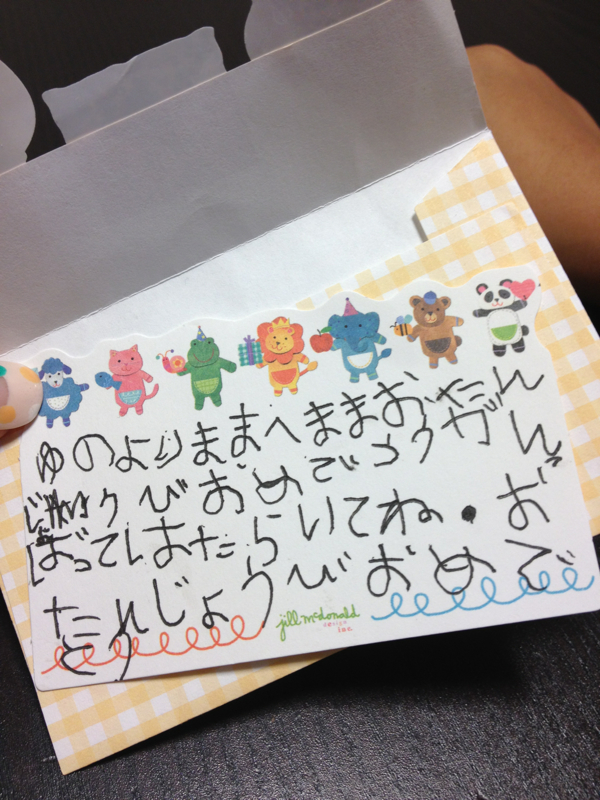 ゆのよりままへままおたん
じょうびおめでとうがん
ばってはたらいてね。お
たんじょうびおめで
とう
jill mcdonald
design
inc